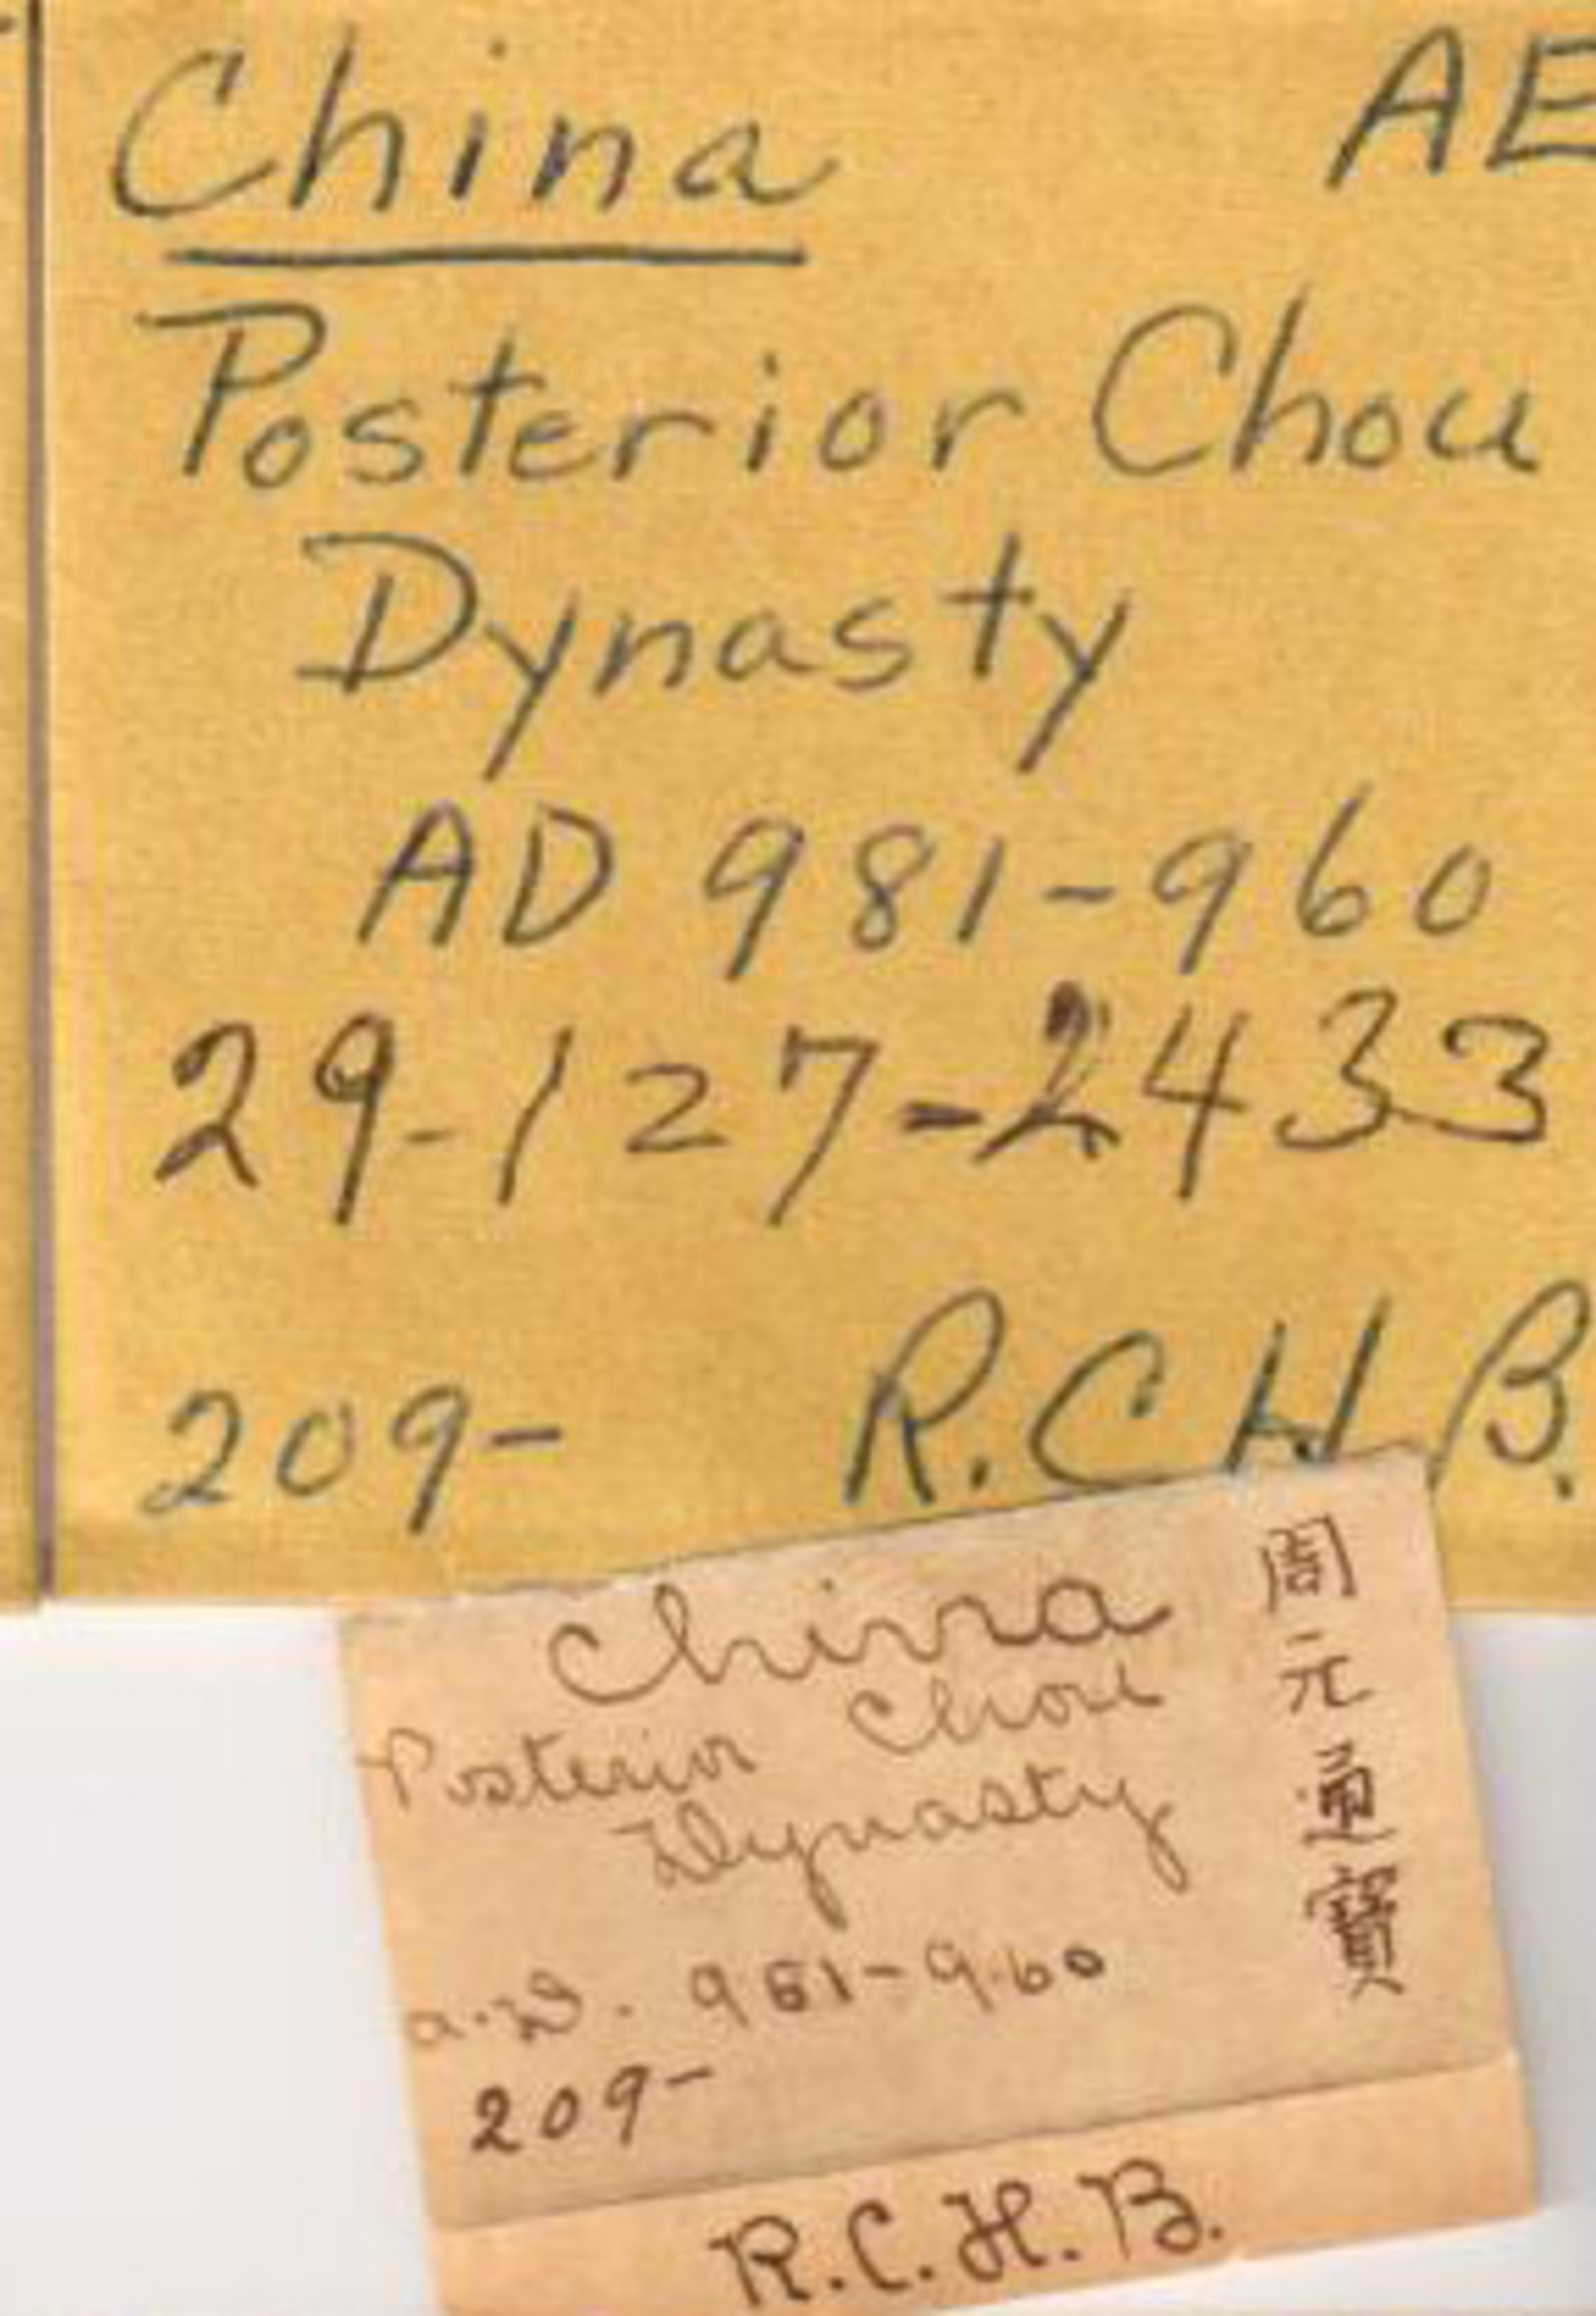 China AE
Posterior Chou
Dynasty
AD 981-960
29-127-2433
209- R.C H B.
China
Posterior Chou
Dynasty
a.D. 951-960
209-
R.C.H.B.
周元通寶